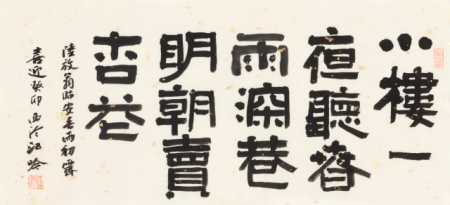 小樓一
夜聽春
雨深巷
明朝賣
杏花
陸放翁臨安春雨初霽
喜迎癸卯 西泠江吟